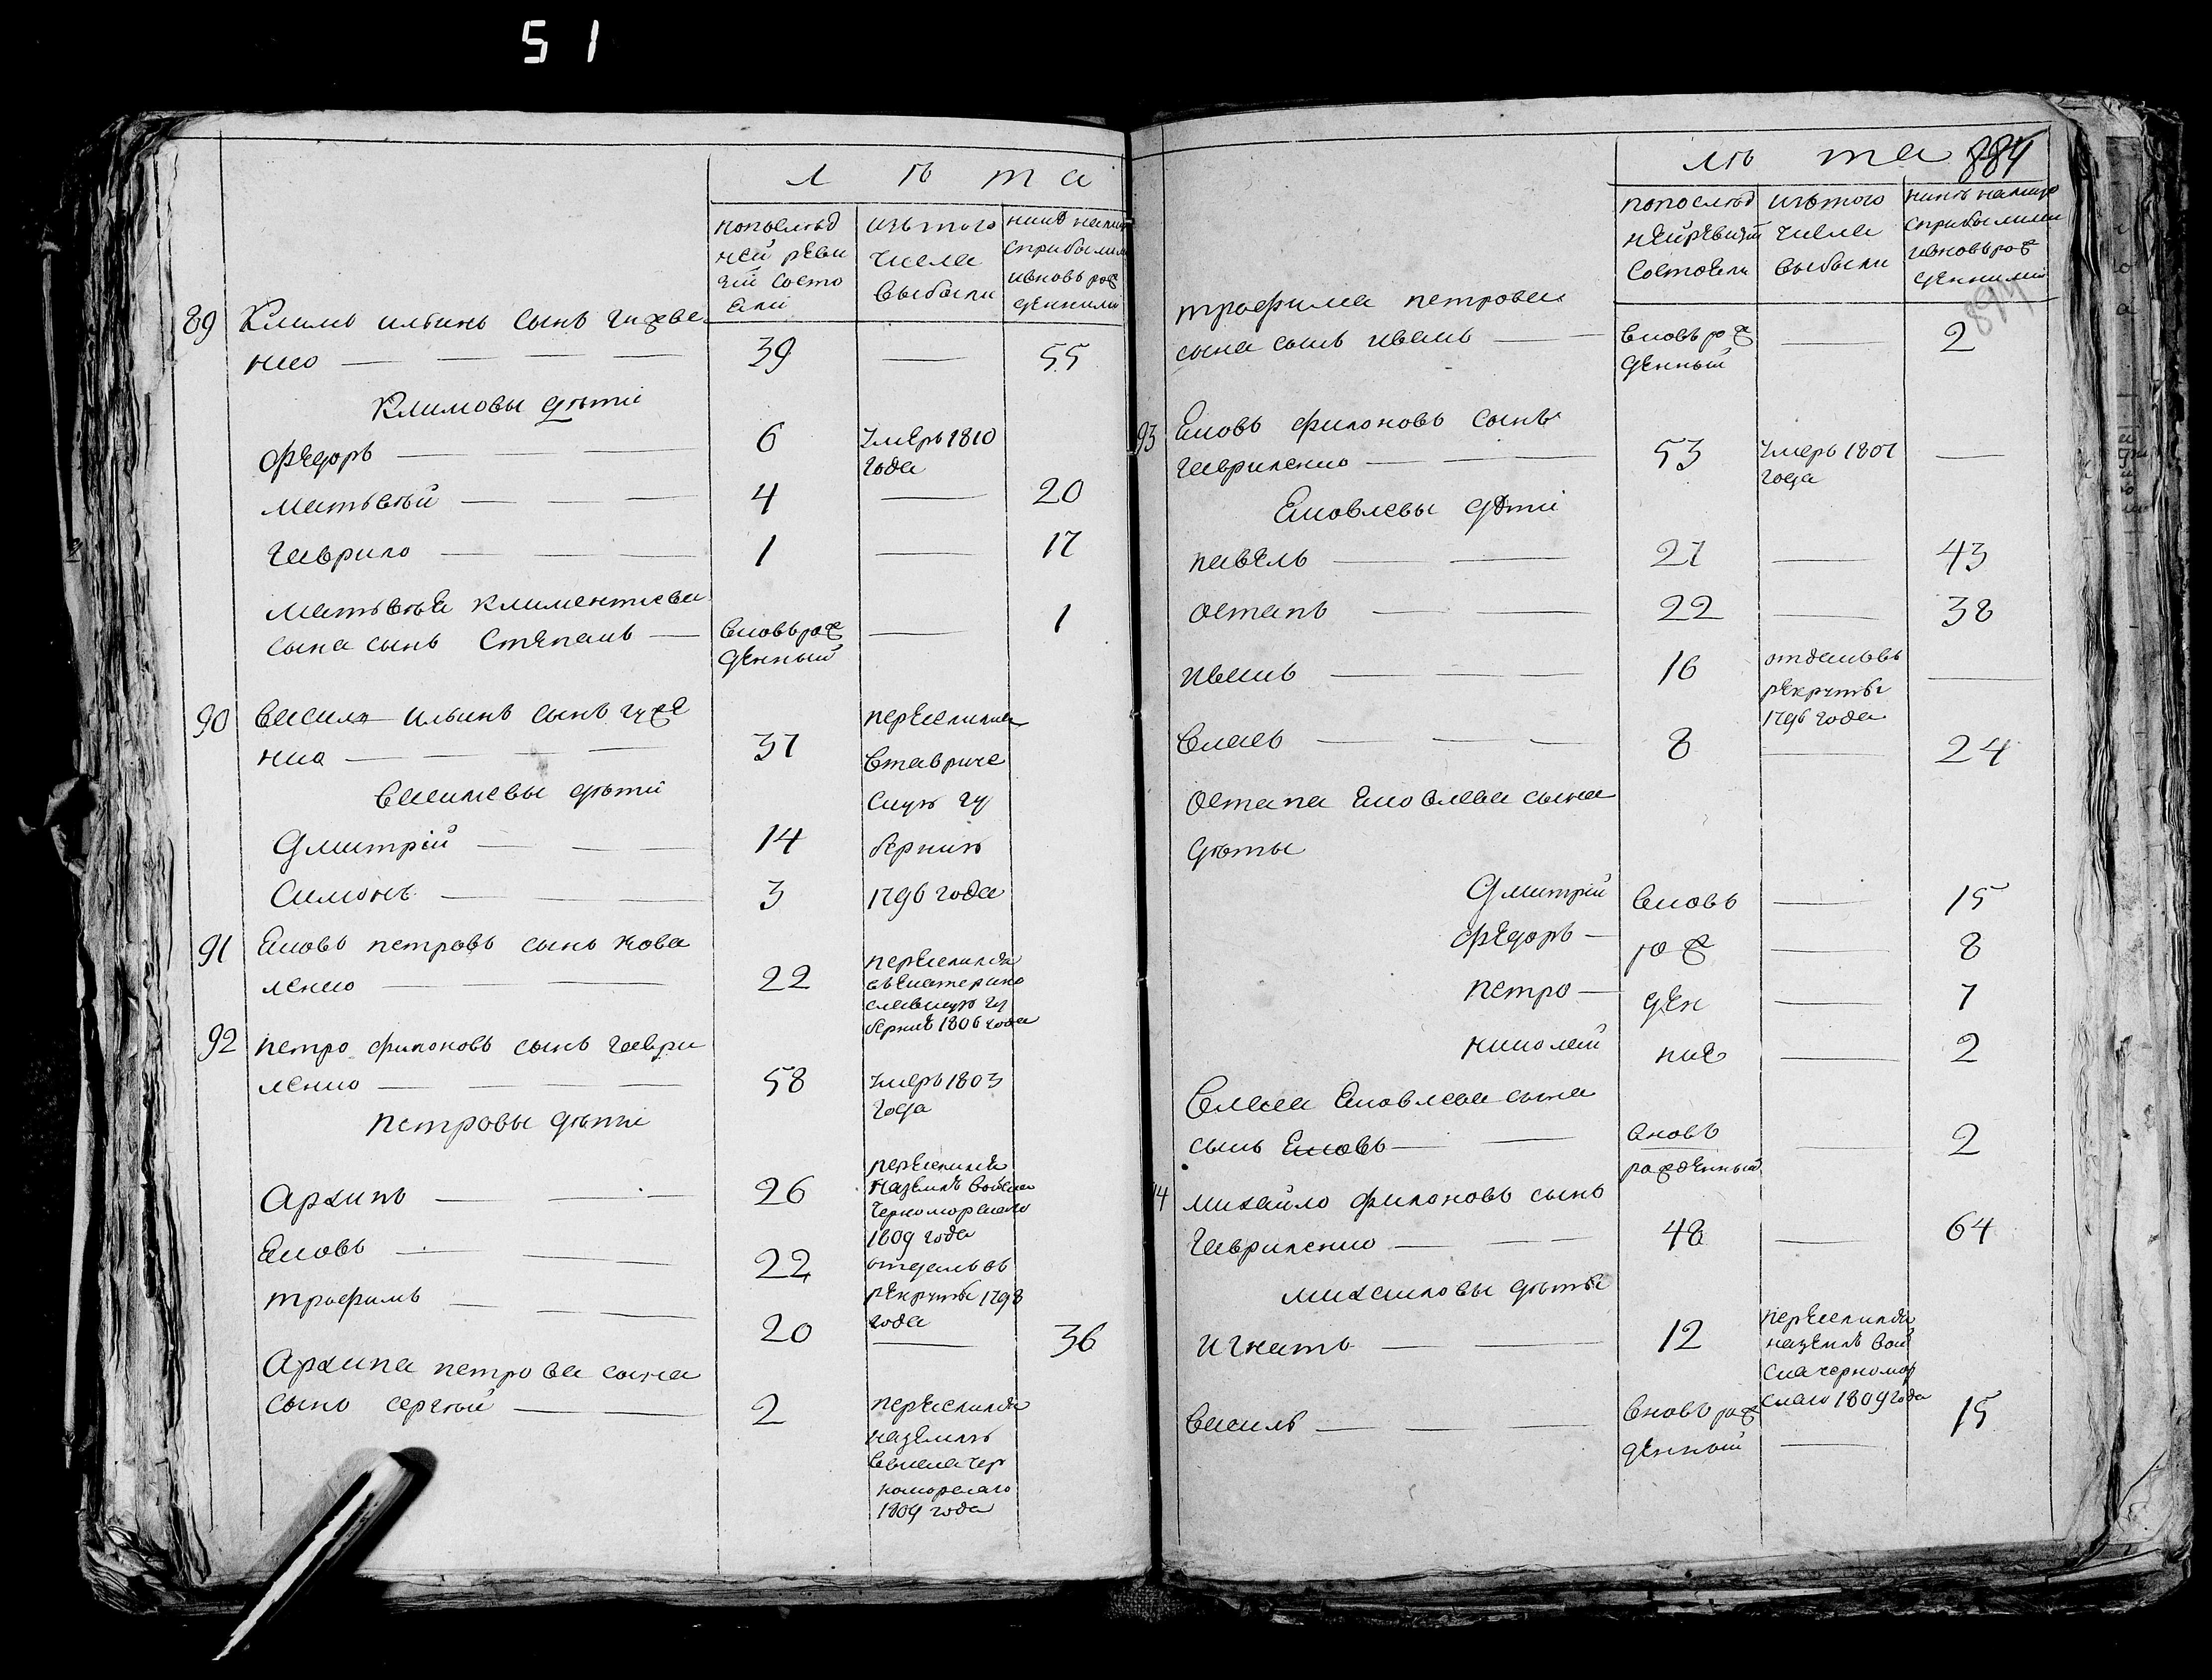 51
Л ѣ т а
попослѣд
ней реви
зіи состо
яли
изътого
числа
выбыли
ныне налицо
сприбылыми
ивновь рож
денными
89 Климъ ильинъ сынъ
нко — 39 — 55
Климовы дѣти
Федоръ — 6 умеръ 1810
года
матьвѣй — 4 — 20
Гаврило — 1 — 17
матьвѣя климентиева
сына сынъ Степанъ — вновьрож — 1
денный
90 василь ильинъ сынъ
нко — 37 переселился
втавриче
скую гу
бернию
1796 года
василиевы дѣти
Дмитрій — 14
Симонъ — 3
91 Яковъ петровъ сынъ кова
ленко — 22 переселился
въекатерино
славскую гу
бернию 1806 года
92 петро филоновъ сынъ гаври
ленко — 58 умеръ 1803
года
петровы дѣти
Архипъ — 26 переселился
наземлю войска
черноморскаго
1809 года
Яковъ — 22 отданъвъ
рекруты 1798
года
трофимъ — 20 — 36
Архипа петрова сына
сынъ сергѣй — 2 переселился
наземлю
войска чер
номорскаго
1809 года
лѣ та 884
попослѣд
нейревизіи
Состояли
изътого
числа
выбыли
нынѣ налицо
сприбылыми
ивновьрож
денными
884
трофима петрова
сына сынъ иванъ — вновь рож — 2
денный
93 Яковъ филоновъ сынъ
гавриленко — 53 умеръ 1807 —
года
Яковлевы дѣти
павелъ — 27 — 43
остапъ — 22 — 38
иванъ — 16 отданъвъ —
рекруты
1796 года
власъ — 8 — 24
остапа Яковлева сына
дѣты
Дмитрій вновь — 15
Федоръ — рож — 8
петро — ден — 7
николай ние — 2
власа Яковлева сына
сынъ Яковъ — вновь — 2
рожденный
94 михайло филоновъ сынъ
гавриленко — 48 — 64
михаиловы дѣты
игнатъ — 12 переселился
наземлю вой
ска черномор
скаго 1809 года
василь — вновь рож — 15
денный